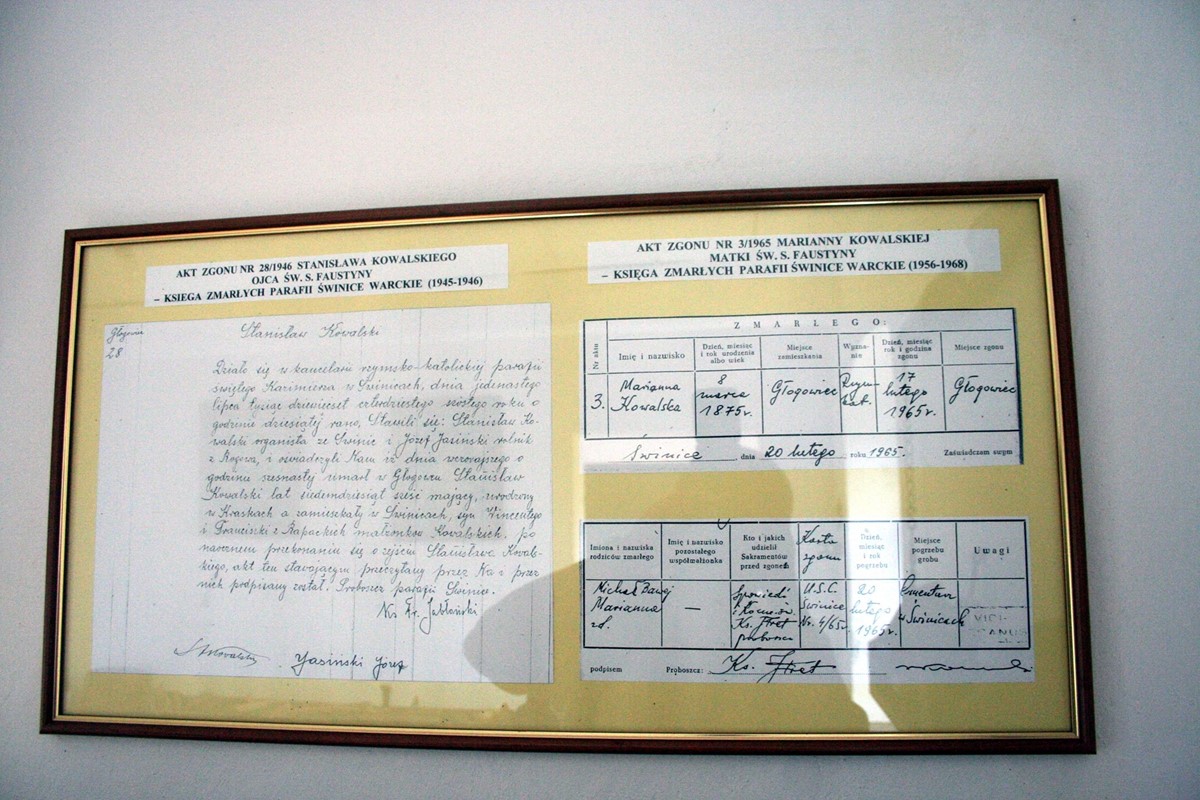 AKT ZGONU NR 28/1946 STANISŁAWA KOWALSKIEGO
OJCA ŚW. S. FAUSTYNY
– KSIEGA ZMARŁYCH PARAFII ŚWINICE WARCKIE (1945-1946)
Głogowiec
28
Stanisław Kowalski
Działo się w kancelarii rzymsko-katolickiej parafii
świętego Kazimierza w Świnicach, dnia jedenastego
lipca tysiąc dziewięćset czterdziestego szóstego roku o
godzinie dziesiątej rano, Stawili się: Stanisław Ko-
walski organista ze Świnic i Józef Jasiński rolnik
z Rogowa, i oświadczyli Nam iż dnia wczorajszego o
godzinie szesnastej umarł w Głogowcu Stanisław
Kowalski lat siedemdziesiąt sześć mający, urodzony
w Kraskach a zamieszkały w Świnicach, syn Wincentego
i Franciszki z Rapackich małżonków Kowalskich. Po
naocznem przekonaniu się o zejściu Stanisława Kowal-
skiego, akt ten stawającym przeczytany przez Nas i przez
nich podpisany został. Proboszcz parafii Świnice.
Ks. Fr. Jabłoński
St Kowalski
Jasiński Józef
AKT ZGONU NR 3/1965 MARIANNY KOWALSKIEJ
MATKI ŚW. S. FAUSTYNY
– KSIĘGA ZMARŁYCH PARAFII ŚWINICE WARCKIE (1956-1968)
ZMARŁEGO:
Nr aktu
Imię i nazwisko
Dzień, miesiąc i rok urodzenia albo wiek
Miejsce zamieszkania
Wyzna-nie
Dzień, miesiąc rok i godzina zgonu
Miejsce zgonu
3.
Marianna Kowalska
8 marca 1875r.
Głogowiec
Rzym-kat.
17 lutego 1965r.
Głogowiec
Świnice, dnia 20 lutego roku 1965. Zaświadczam swym
Imiona i nazwiska rodziców zmarłego
Imię i nazwisko pozostałego współmałżonka
Kto i jakich udzielił Sakramentów przed zgonem
Karta zgonu
Dzień, miesiąc i rok pogrzebu
Miejsce pogrzebu grobu
Uwagi
Michał Marianna
—
Spowiedź i Ks. proboszcz
U.S.C. Świnice Nr. 4/65r.
20 lutego 1965r.
Cmentarz w Świnicach
podpisem Proboszcz: Ks.